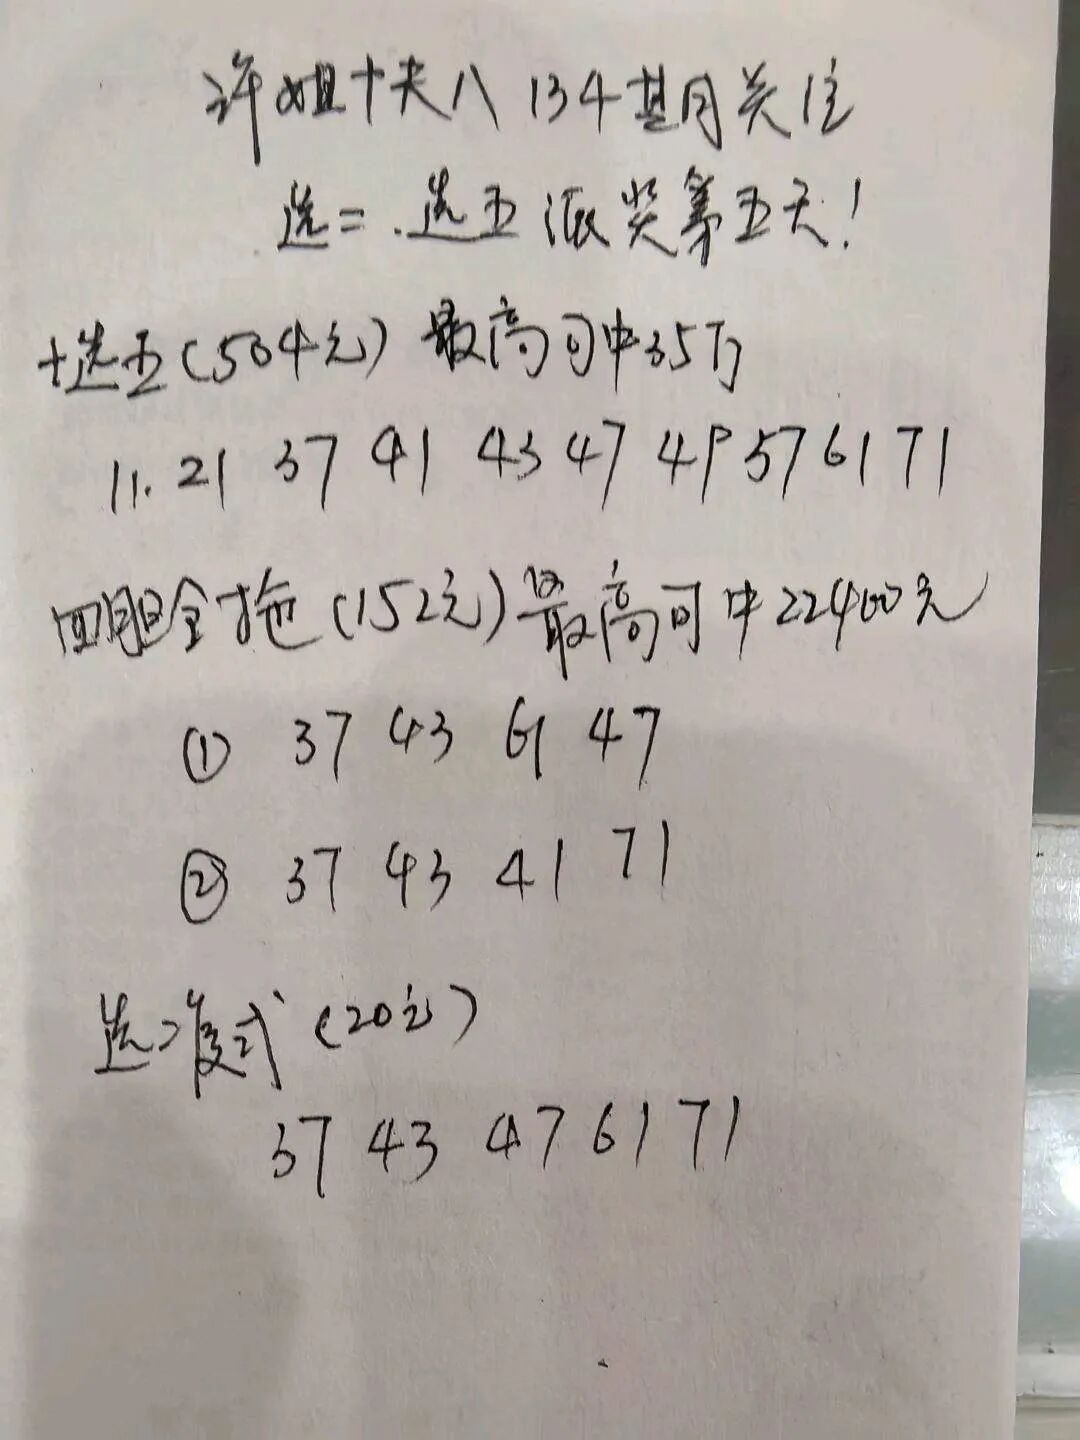 许姐十夫八134期关注
选二.选五派奖第五天!
十选五(504元)最高可中35万
11. 21 37 41 43 47 49 57 61 71
四胆全拖(152元)最高可中22400元
① 37 43 61 47
② 37 43 41 71
选二复式(20元)
37 43 47 61 71